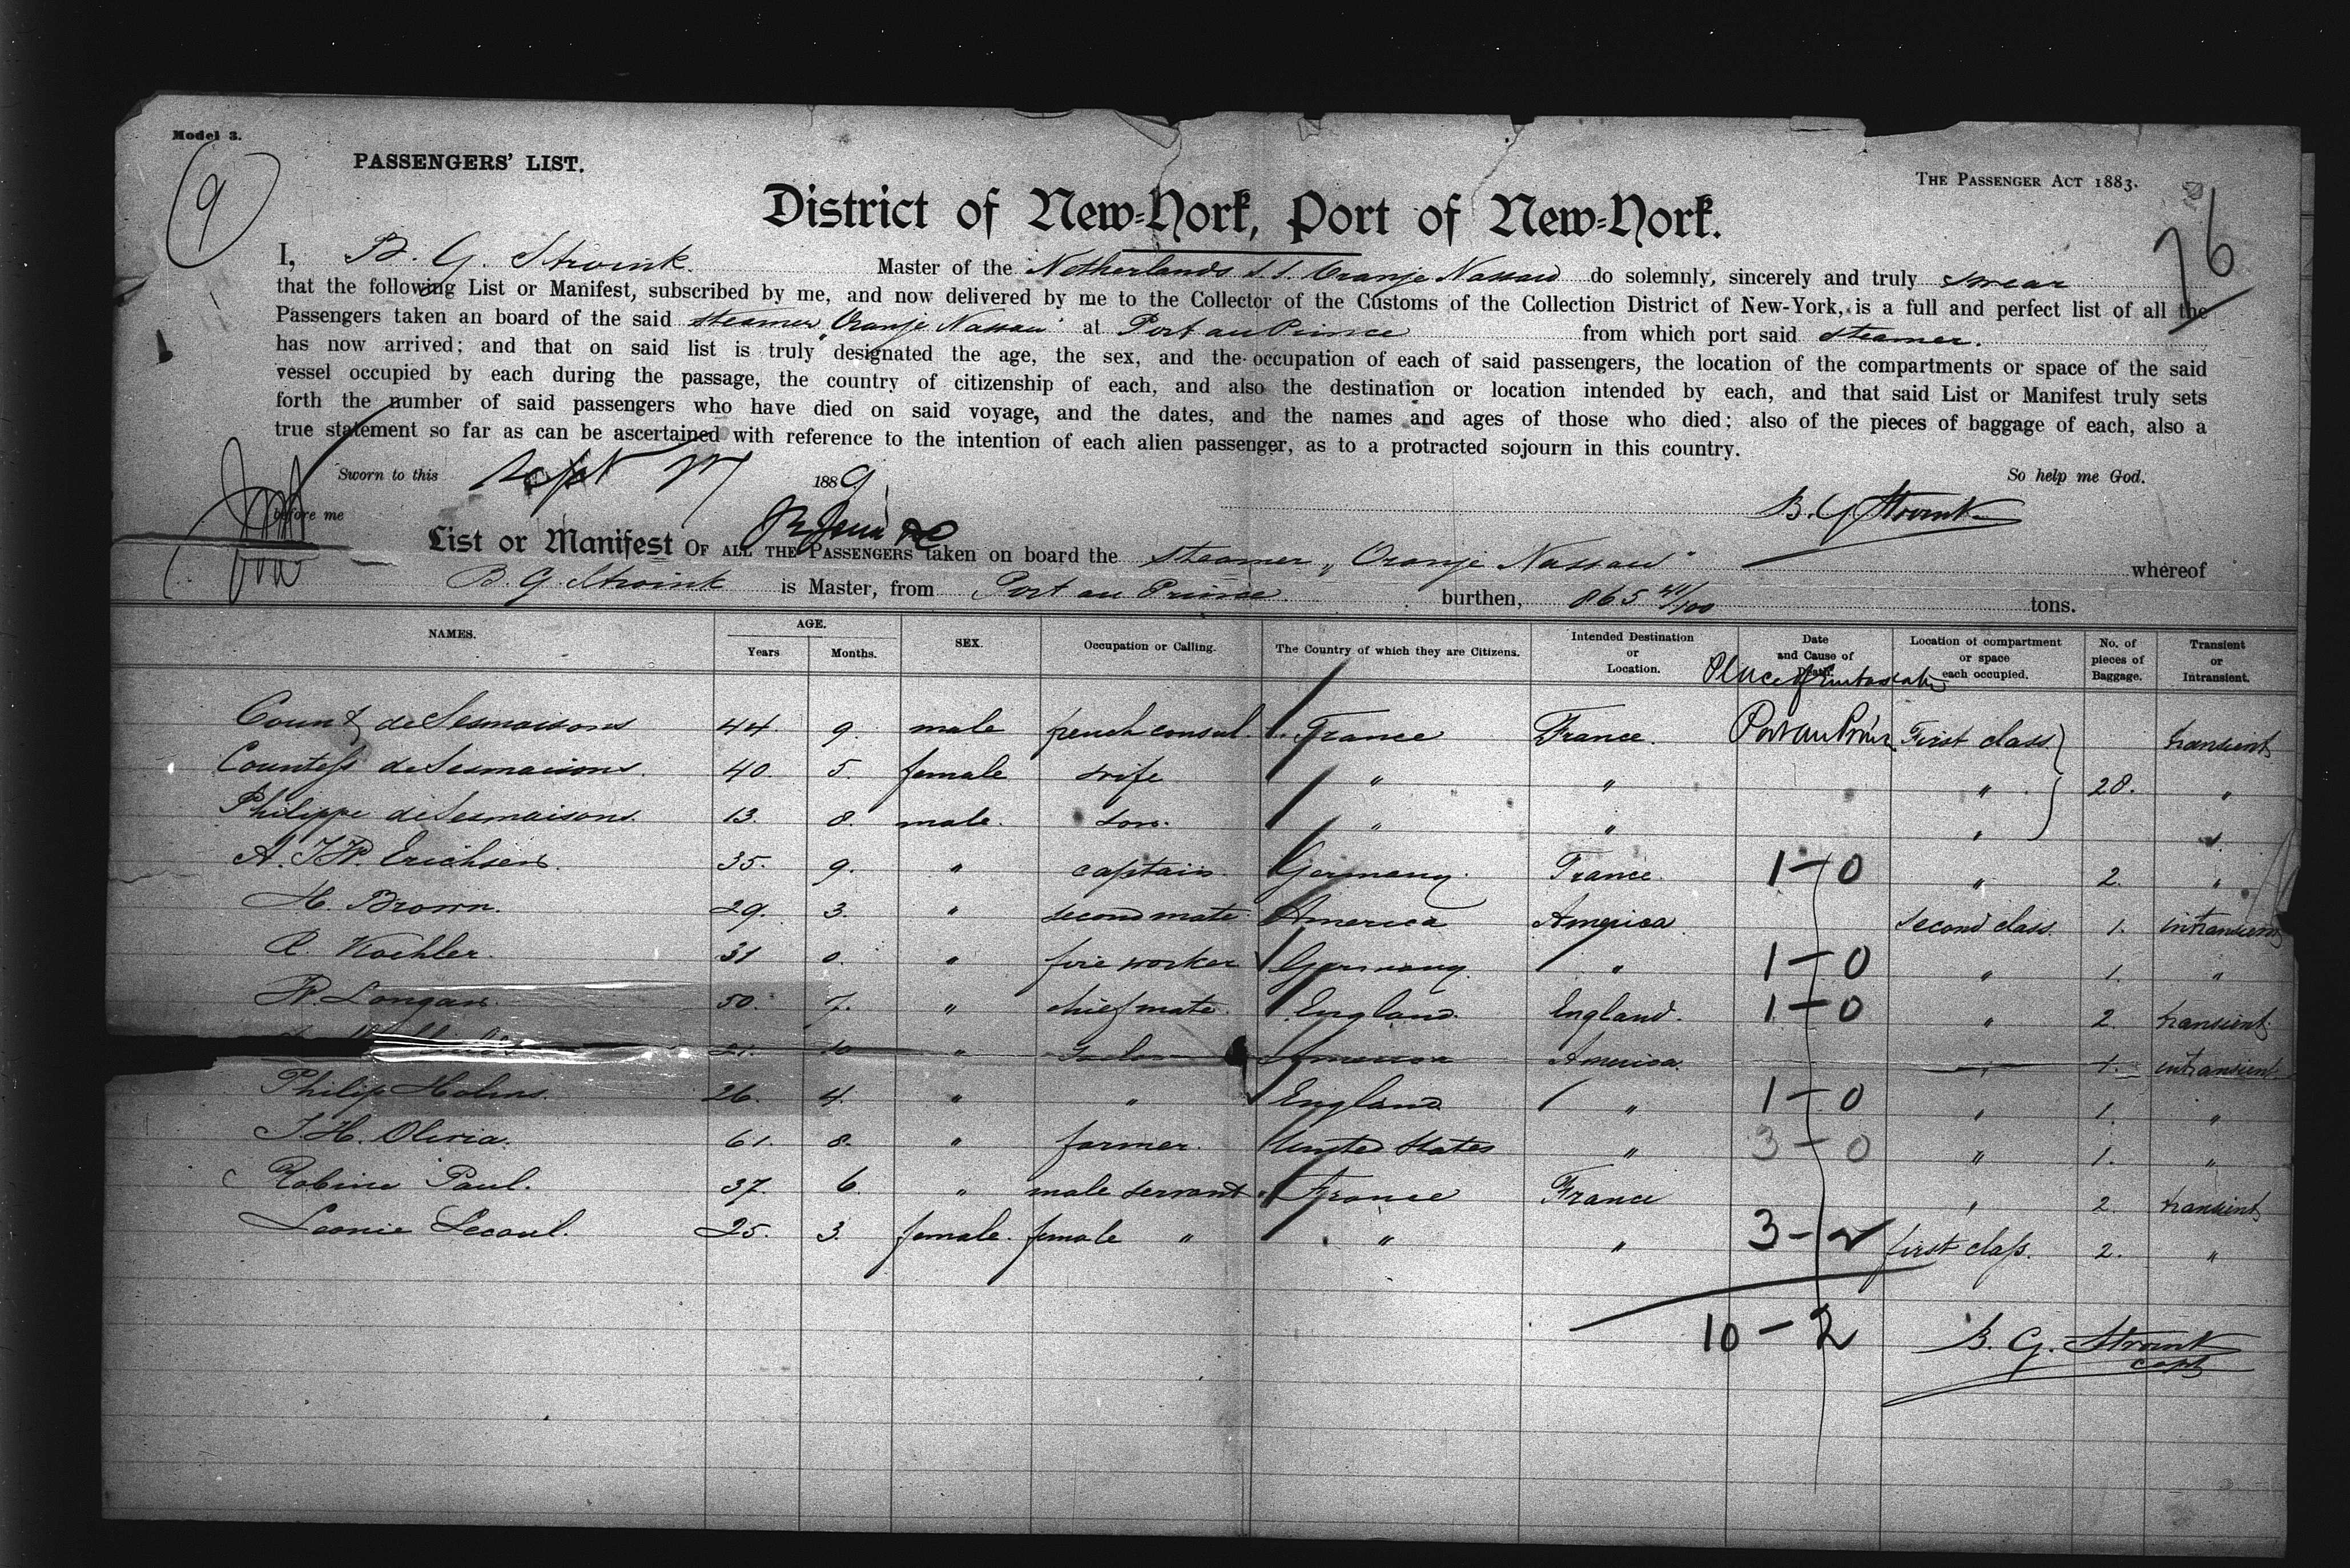 Model 3.
9
PASSENGERS' LIST.
THE PASSENGER ACT 1883.
76
District of New-York, Port of New-York.
I, B. G. Stroink. Master of the Netherlands S. S. Oranje Nassau do solemnly, sincerely and truly swear
that the following List or Manifest, subscribed by me, and now delivered by me to the Collector of the Customs of the Collection District of New-York, is a full and perfect list of all the
Passengers taken an board of the said steamer "Oranje Nassau" at Port au Prince from which port said steamer.
has now arrived; and that on said list is truly designated the age, the sex, and the occupation of each of said passengers, the location of the compartments or space of the said
vessel occupied by each during the passage, the country of citizenship of each, and also the destination or location intended by each, and that said List or Manifest truly sets
forth the number of said passengers who have died on said voyage, and the dates, and the names and ages of those who died; also of the pieces of baggage of each, also a
true statement so far as can be ascertained with reference to the intention of each alien passenger, as to a protracted sojourn in this country.
Sworn to this Sept 1889 So help me God.
before me B. G. Stroink
List or Manifest OF ALL THE PASSENGERS taken on board the steamer "Oranje Nassau" whereof
B. G. Stroink is Master, from Port au Prince burthen, 865 41/100 tons.
NAMES. AGE. Years Months. SEX. Occupation or Calling. The Country of which they are Citizens. Intended Destination or Location. Date and Cause of Death. Location of compartment or space each occupied. No. of pieces of Baggage. Transient or Intransient.
Place of
Count de Sesmaisons 44. 9. male french consul. France France. Port au Prince First class transient
Countess de Sesmaisons. 40. 5. female wife " " " 28. "
Philippe de Sesmaisons. 13. 8. male. son. " " " "
A. Erichsen. 35. 9. " captain. Germany. France. 1-0 " 2. "
H. Brown. 29. 3. " second mate America America. second class. 1. intransient
Koehler. 31 0. " fire worker Germany. " 1-0 " 1. "
Longan. 50. 7. " chief mate. England. England. 1-0 " 2. transient
21. 10 " America America. " 1. intransient
Philip Holms. 26. 4. " " England " 1-0 " 1. "
J. H. Olivia. 61. 8. " farmer. United States " 3-0 " 1. "
Robine Paul. 37. 6. " male servant France France " 2. transient
Leonie Lecoul. 25. 3. female. female " " " 3-2 first class. 2. "
10-2
B. G. Stroink
capt